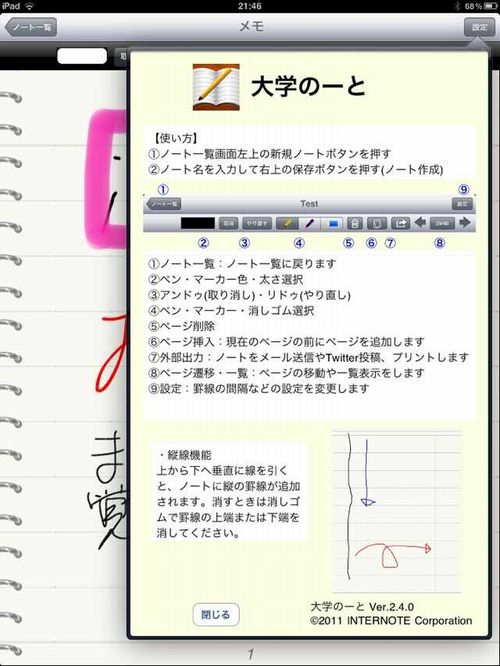 iPad
21:46
68%
ノート一覧
メモ
設定
大学のーと
【使い方】
①ノート一覧画面左上の新規ノートボタンを押す
②ノート名を入力して右上の保存ボタンを押す(ノート作成)
① ⑨
ノート一覧 Test 設定
取消 やり直す
② ③ ④ ⑤ ⑥ ⑦ ⑧
①ノート一覧：ノート一覧に戻ります
②ペン・マーカー色・太さ選択
③アンドゥ(取り消し)・リドゥ(やり直し)
④ペン・マーカー・消しゴム選択
⑤ページ削除
⑥ページ挿入：現在のページの前にページを追加します
⑦外部出力：ノートをメール送信やTwitter投稿、プリントします
⑧ページ遷移・一覧：ページの移動や一覧表示をします
⑨設定：罫線の間隔などの設定を変更します
・縦線機能
上から下へ垂直に線を引く
と、ノートに縦の罫線が追加
されます。消すときは消しゴ
ムで罫線の上端または下端を
消してください。
ま
覚
閉じる
大学のーと Ver.2.4.0
©2011 INTERNOTE Corporation
1